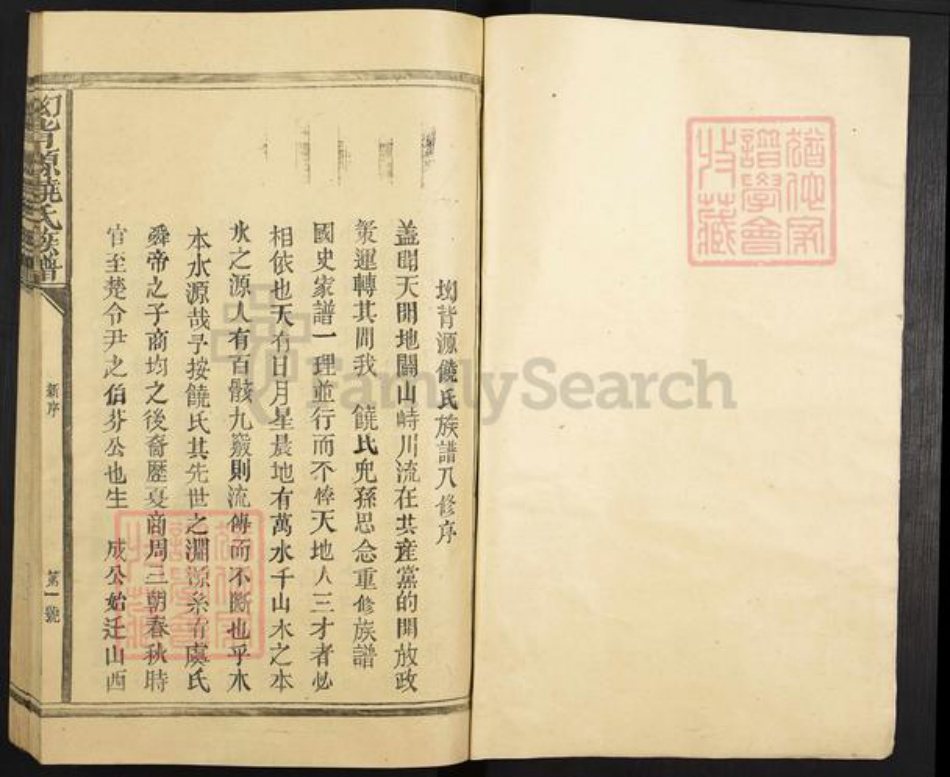 坳背源饒氏族譜八修序
蓋聞天開地闢山峙川流在共產黨的開放政
策運轉其間我　饒氏兜孫思念重修族譜
國史家譜一理並行而不悖天地人三才者必
相依也天有日月星晨地有萬水千山木之本
水之源人有百骸九竅則流傳而不斷也乎木
本水源哉予按饒氏其先世之淵源系有虞氏
舜帝之子商均之後裔歷夏商周三朝春秋時
官至楚令尹之伯芬公也生　成公始迁山西
坳背源饒氏族譜
新序
第一號
譜學會
收藏
FamilySearch